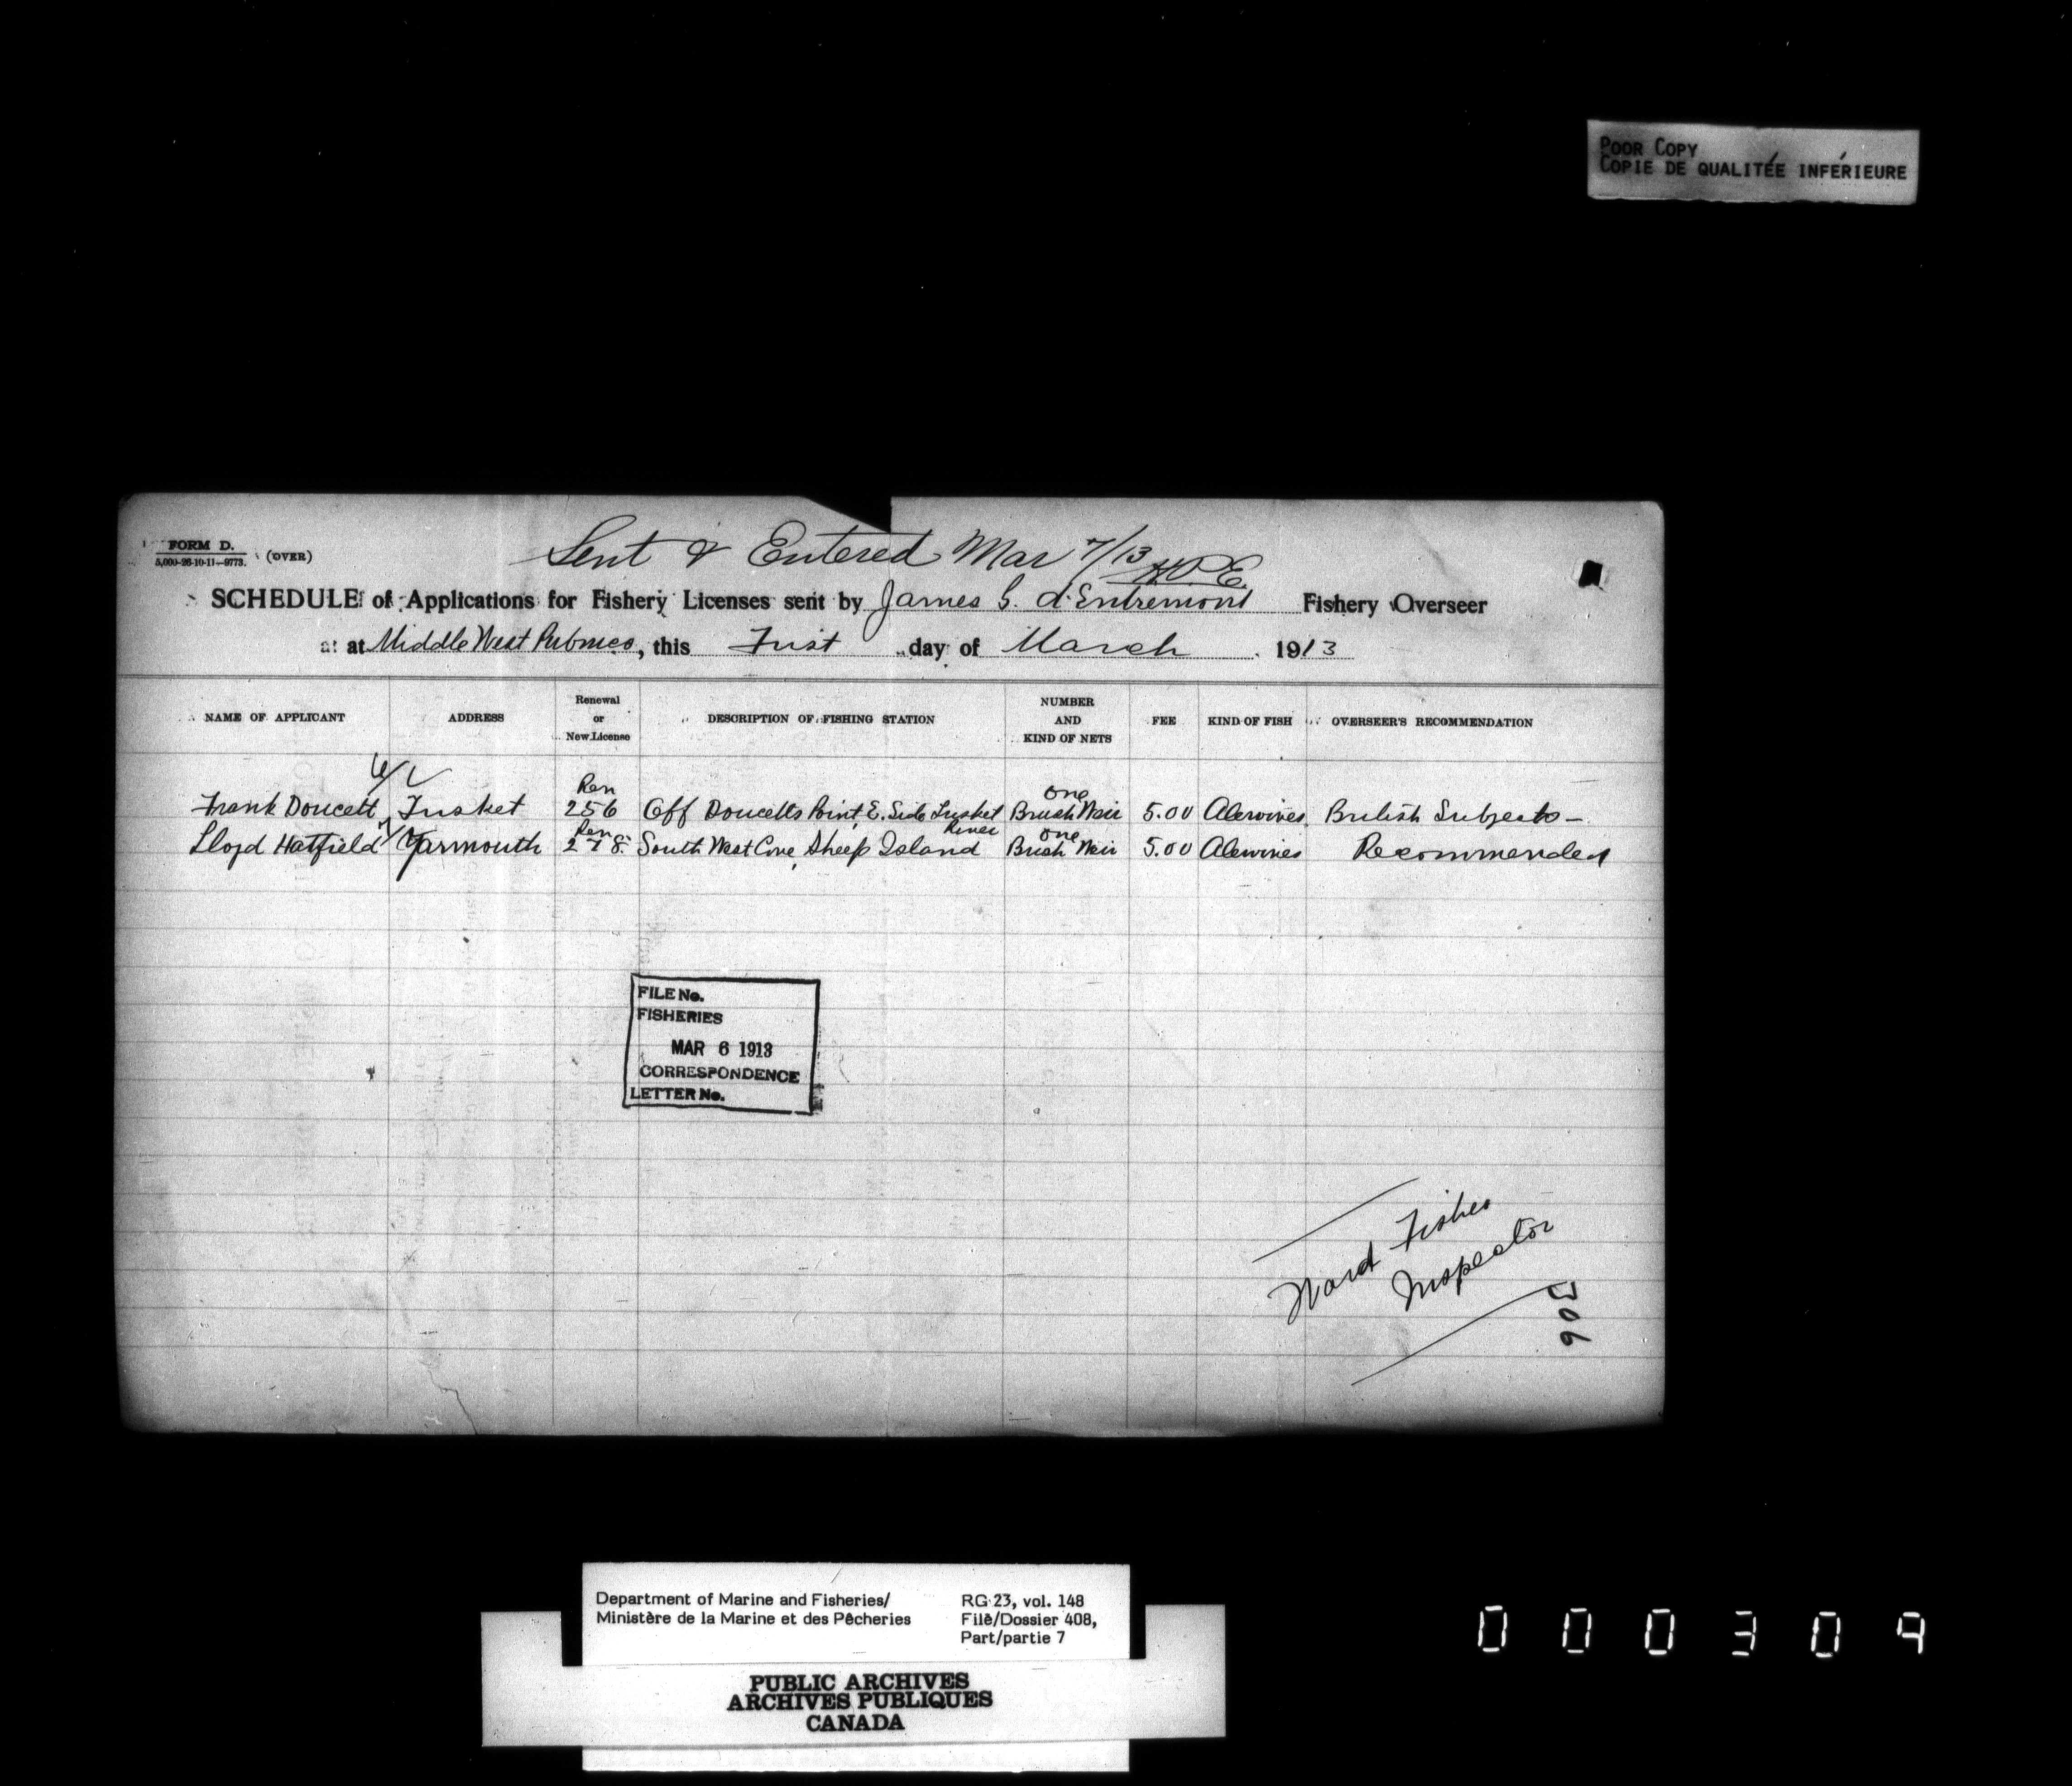 POOR COPY
COPIE DE QUALITÉE INFÉRIEURE
FORM D. (OVER)
5,000-26-10-11-9773.
Sent & Entered Mar 7/13
SCHEDULE of Applications for Fishery Licenses sent by James G. d'Entremont Fishery Overseer
at Middle West Pubnico, this First day of March 1913
NAME OF APPLICANT ADDRESS Renewal or New License DESCRIPTION OF FISHING STATION NUMBER AND KIND OF NETS FEE KIND OF FISH OVERSEER'S RECOMMENDATION
Frank Doucett Tusket Ren 256 Off Doucetts Point, E. Side Tusket River one Brush Weir 5.00 Alewives British Subjects -
Lloyd Hatfield Yarmouth Ren 278 South West Cove, Sheep Island one Brush Weir 5.00 Alewives Recommended
FILE No.
FISHERIES
MAR 6 1913
CORRESPONDENCE
LETTER No.
Ward Fisher
Inspector
306
Department of Marine and Fisheries/
Ministère de la Marine et des Pêcheries
RG 23, vol. 148
File/Dossier 408,
Part/partie 7
PUBLIC ARCHIVES
ARCHIVES PUBLIQUES
CANADA
000309